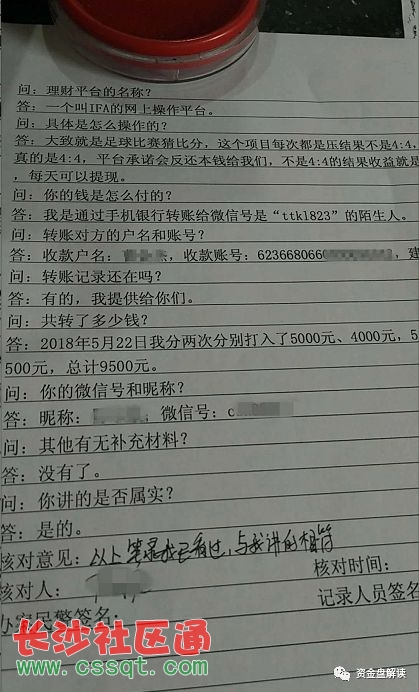 问：理财平台的名称？
答：一个叫IFA的网上操作平台。
问：具体是怎么操作的？
答：大致就是足球比赛猜比分，这个项目每次都是压结果不是4:4，
真的是4:4，平台承诺会反还本钱给我们，不是4:4的结果收益就是
，每天可以提现。
问：你的钱是怎么付的？
答：我是通过手机银行转账给微信号是“ttkl823”的陌生人。
问：转账对方的户名和账号？
答：收款户名：，收款账号：623668066，建
问：转账记录还在吗？
答：有的，我提供给你们。
问：共转了多少钱？
答：2018年5月22日我分两次分别打入了5000元、4000元，5
500元，总计9500元。
问：你的微信号和昵称？
答：昵称：，微信号：
问：其他有无补充材料？
答：没有了。
问：你讲的是否属实？
答：是的。
核对意见：以上笔录我已看过，与我讲的相符
核对人：
核对时间：
办案民警签名：
记录人员签名
长沙社区通
www.cssqt.com
资金盘解读